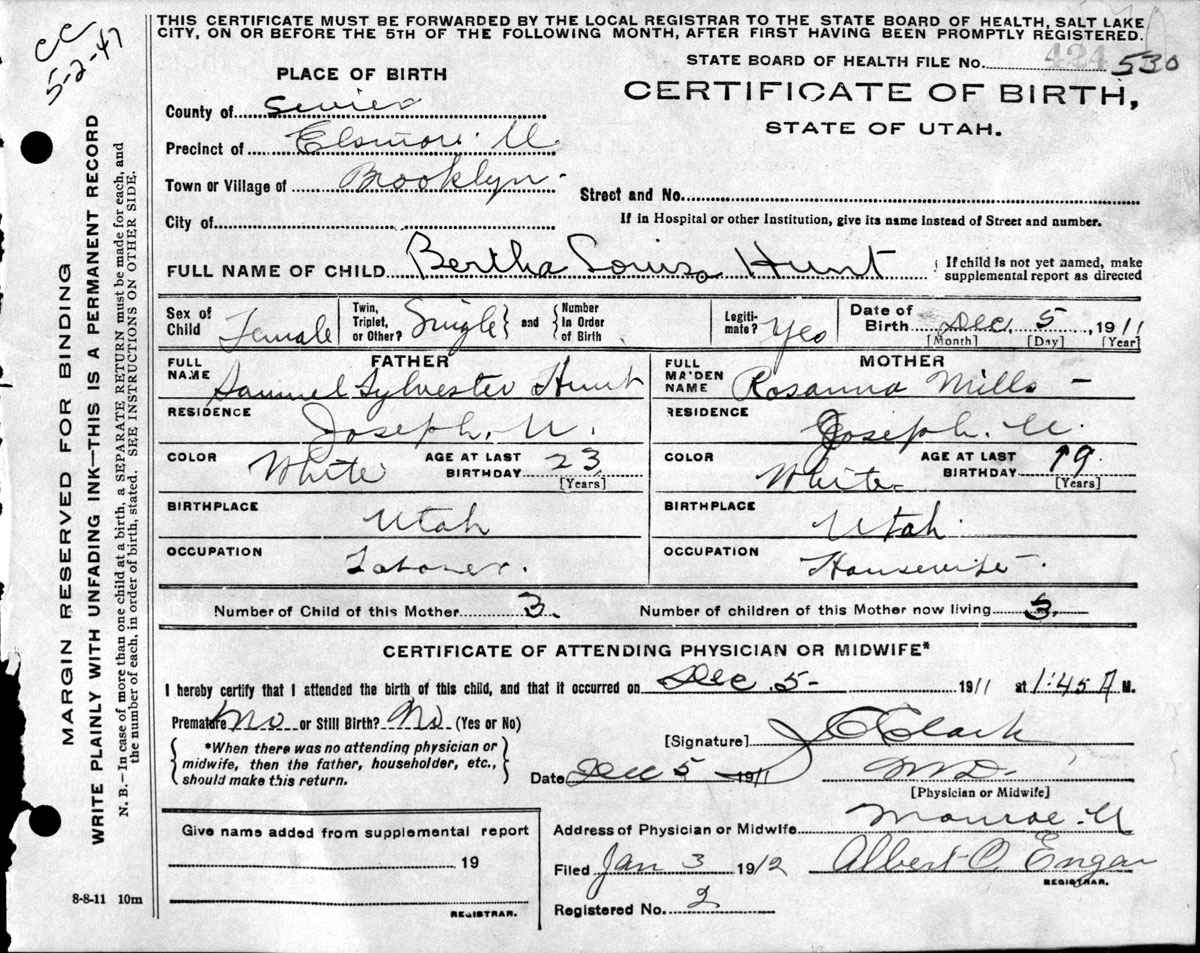 CC
5-2-47
THIS CERTIFICATE MUST BE FORWARDED BY THE LOCAL REGISTRAR TO THE STATE BOARD OF HEALTH, SALT LAKE
CITY, ON OR BEFORE THE 5TH OF THE FOLLOWING MONTH, AFTER FIRST HAVING BEEN PROMPTLY REGISTERED.
STATE BOARD OF HEALTH FILE No. 424 530
PLACE OF BIRTH
CERTIFICATE OF BIRTH,
STATE OF UTAH.
County of Sevier
Precinct of Elsinore U
Town or Village of Brooklyn-
Street and No.
City of
If in Hospital or other Institution, give its name Instead of Street and number.
FULL NAME OF CHILD Bertha Louisa Hunt { If child is not yet named, make
supplemental report as directed
Sex of Child Female Twin, Triplet, or Other? Single } and { Number In Order of Birth Legiti-mate? Yes Date of Birth Dec. 5, 1911
[Month] [Day] [Year]
FATHER MOTHER
FULL NAME Samuel Sylvester Hunt FULL MAIDEN NAME Rosanna Mills -
RESIDENCE Joseph, U. RESIDENCE Joseph. U.
COLOR White AGE AT LAST BIRTHDAY 23 COLOR White AGE AT LAST BIRTHDAY 19.
[Years] [Years]
BIRTHPLACE Utah BIRTHPLACE Utah.
OCCUPATION Laborer. OCCUPATION Housewife.
Number of Child of this Mother 3. Number of children of this Mother now living 3.
CERTIFICATE OF ATTENDING PHYSICIAN OR MIDWIFE*
I hereby certify that I attended the birth of this child, and that it occurred on Dec. 5- 1911 at 1:45 A M.
Premature No or Still Birth? No (Yes or No)
{ *When there was no attending physician or
midwife, then the father, householder, etc.,
should make this return. }
[Signature] J C Clark
Date Dec 5 1911 M D.
[Physician or Midwife]
Give name added from supplemental report
19
REGISTRAR.
Address of Physician or Midwife Monroe U
Filed Jan 3 1912 Albert O. Engar
REGISTRAR.
Registered No. 2
8-8-11 10m
MARGIN RESERVED FOR BINDING
WRITE PLAINLY WITH UNFADING INK—THIS IS A PERMANENT RECORD
N. B.—In case of more than one child at a birth, a SEPARATE RETURN must be made for each, and
the number of each, in order of birth, stated. SEE INSTRUCTIONS ON OTHER SIDE.